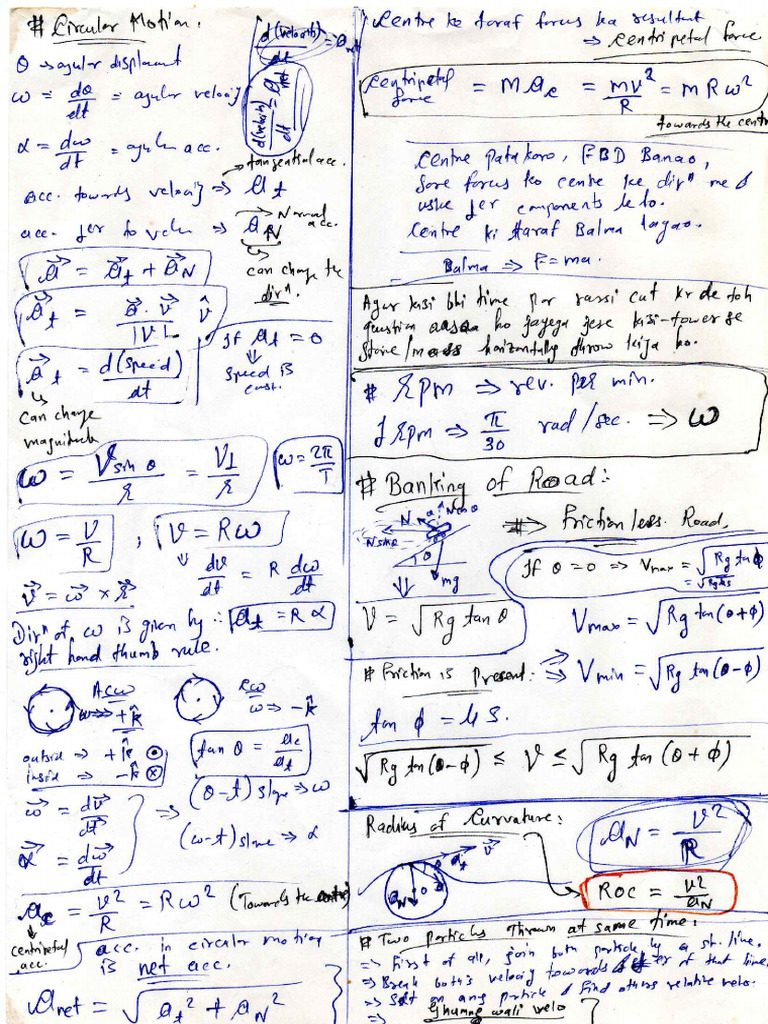 # Circular Motion.
θ → agular displacement
ω = dθ/dt = agular velocity
α = dω/dt = agular acc.
d(velocity)/dt = a_net
d(velocity)/dt = a_net
→ tangential acc.
Acc. towards velocity ⇒ a_t
→ Normal acc.
acc. per to velo. ⇒ a_N
↳ can change the dirⁿ.
a⃗ = a⃗_t + a⃗_N
a⃗_t = a⃗ . v⃗ / |v| v̂
If a_t = 0
⇓
speed is const.
a⃗_t = d(speed)/dt
↳ can change magnitude
ω = V sin θ / r = V⊥ / r
ω = 2π/T
ω = V/R , V = Rω
⇓
dv/dt = R dω/dt
v⃗ = ω⃗ × r⃗
a_t = R α
Dirⁿ of ω is given by :
right hand thumb rule.
ACW
ω ⇒ +k̂
CW
ω ⇒ -k̂
outside ⇒ +k̂ ⊙
inside ⇒ -k̂ ⊗
tan θ = a_c / a_t
ω⃗ = dv⃗/dt⃗
α⃗ = dω⃗/dt
⇒ (θ-t) slope ⇒ ω
(ω-t) slope ⇒ α
a_c = v²/R = Rω² (Towards the centre)
↳ centripetal acc.
acc. in circular motion
is net acc.
a_net = √a_t² + a_N²
Centre ko taraf forces ka resultant
⇒ centripetal force
centripetal force = m a_c = mv²/R = m R ω²
towards the centre
Centre Pata karo, FBD Banao,
Sare forces ko centre ke dirⁿ me &
uske per components le lo.
Centre ki taraf Balma lagao.
Balma ⇒ F = ma.
Agar kisi bhi time par rassi cut kr de toh
question aisa ho jayega jese kisi tower se
stone/mass horizontally throw kiya ho.
# rpm ⇒ rev. per min.
1 rpm ⇒ π/30 rad/sec. ⇒ ω
# Banking of Road :
N
N cos θ
N sin θ
θ
mg
⇒ Frictionless Road.
⇓
V = √Rg tan θ
If θ = 0 ⇒ V_max = √Rg tan ϕ
= √Rgμs
V_max = √Rg tan(θ+ϕ)
# Friction is Present : ⇒ V_min = √Rg tan(θ-ϕ)
tan ϕ = μs.
√Rg tan(θ-ϕ) ≤ V ≤ √Rg tan(θ+ϕ)
Radius of Curvature :
a_N = v²/R
a_t v⃗
a_N
ROC = v²/a_N
# Two particles thrown at same time :
⇒ First of all, join both particle by a st. line.
⇒ Break both's velocity towards & per of that line.
⇒ Sit on any particle & find others relative velo.
⇒ Ghumne wali velo